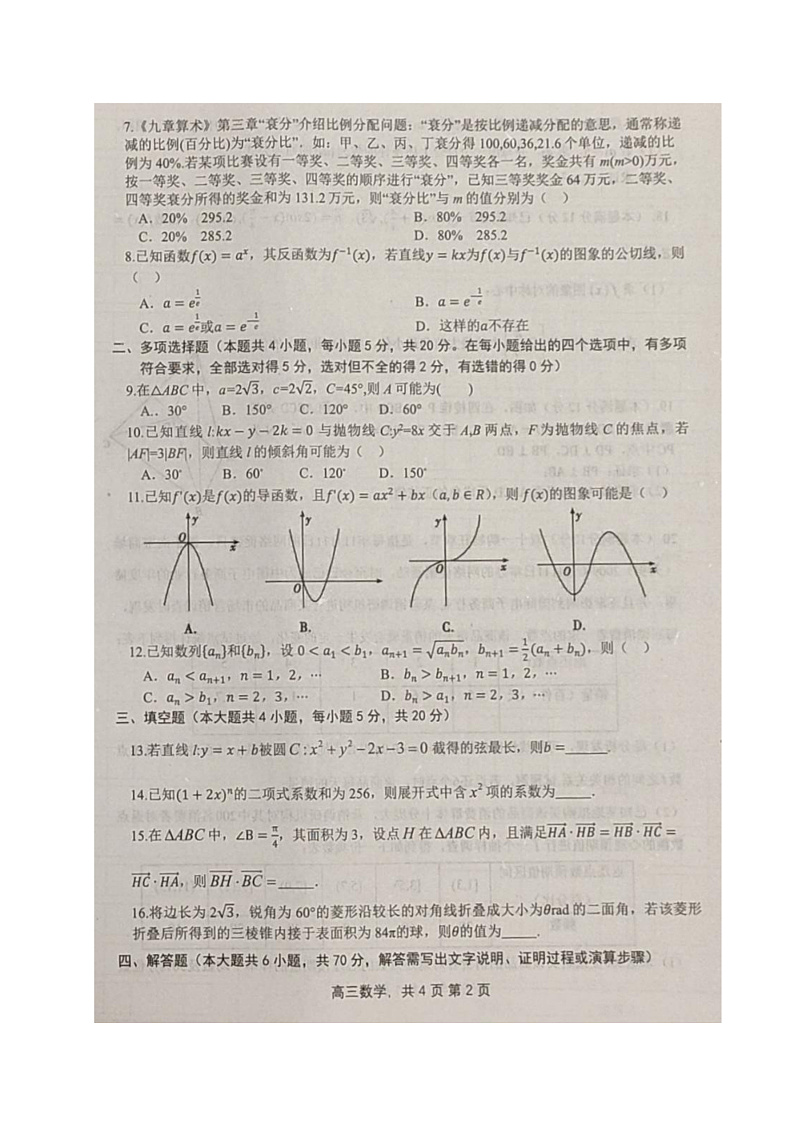 7.《九章算术》第三章“衰分”介绍比例分配问题：“衰分”是按比例递减分配的意思，通常称递
减的比例(百分比)为“衰分比”. 如：甲、乙、丙、丁衰分得 100,60,36,21.6 个单位，递减的比
例为 40%.若某项比赛设有一等奖、二等奖、三等奖、四等奖各一名，奖金共有 m(m>0)万元，
按一等奖、二等奖、三等奖、四等奖的顺序进行“衰分”，已知三等奖奖金 64 万元，二等奖、
四等奖衰分所得的奖金和为 131.2 万元，则“衰分比”与 m 的值分别为（ ）
A．20% 295.2 B．80% 295.2
C．20% 285.2 D．80% 285.2
8.已知函数f(x) = aˣ，其反函数为f⁻¹(x)，若直线y = kx为f(x)与f⁻¹(x)的图象的公切线，则
（ ）
A．a = e^(1/e) B．a = e^(−1/e)
C．a = e^(1/e)或a = e^(−1/e) D．这样的a不存在
二、多项选择题（本题共 4 小题，每小题 5 分，共 20 分。在每小题给出的四个选项中，有多项
符合要求，全部选对得 5 分，选对但不全的得 2 分，有选错的得 0 分）
9.在△ABC 中，a=2√3，c=2√2，C=45°,则 A 可能为( )
A.．30° B．150° C．120° D．60°
10.已知直线 l:kx − y − 2k = 0 与抛物线 C:y²=8x 交于 A,B 两点，F 为抛物线 C 的焦点，若
|AF|=3|BF|，则直线 l 的倾斜角可能为（ ）
A．30° B．60° C．120° D．150°
11.已知f′(x)是f(x)的导函数，且f′(x) = ax² + bx（a, b ∈ R），则 f(x)的图象可能是（ ）
y y y y
O x O x O x O x
A. B. C. D.
12.已知数列{aₙ}和{bₙ}，设 0 < a₁ < b₁，aₙ₊₁ = √(aₙbₙ)，bₙ₊₁ = 1/2 (aₙ + bₙ)，则（ ）
A．aₙ < aₙ₊₁，n = 1，2，⋯ B．bₙ > bₙ₊₁，n = 1，2，⋯
C．aₙ > b₁，n = 2，3，⋯ D．bₙ > a₁，n = 2，3，⋯
三、填空题（本大题共 4 小题，每小题 5 分，共 20 分）
13.若直线 l:y = x + b被圆 C : x² + y² − 2x − 3 = 0 截得的弦最长，则b =______.
14.已知(1 + 2x)ⁿ的二项式系数和为 256，则展开式中含 x² 项的系数为_____.
15.在 ΔABC 中，∠B = π/4，其面积为 3，设点 H 在 ΔABC 内，且满足HA⃗ · HB⃗ = HB⃗ · HC⃗ =
HC⃗ · HA⃗，则 BH⃗ · BC⃗ = _____.
16.将边长为 2√3，锐角为 60°的菱形沿较长的对角线折叠成大小为θrad 的二面角，若该菱形
折叠后所得到的三棱锥内接于表面积为 84π的球，则θ的值为_____.
四、解答题（本大题共 6 小题，共 70 分，解答需写出文字说明、证明过程或演算步骤）
高三数学，共 4 页 第 2 页